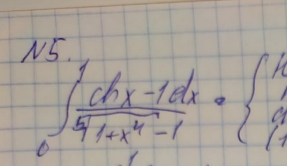 N5.
∫₀¹ (chx-1dx)/(⁵√(1+x⁴)-1) = {